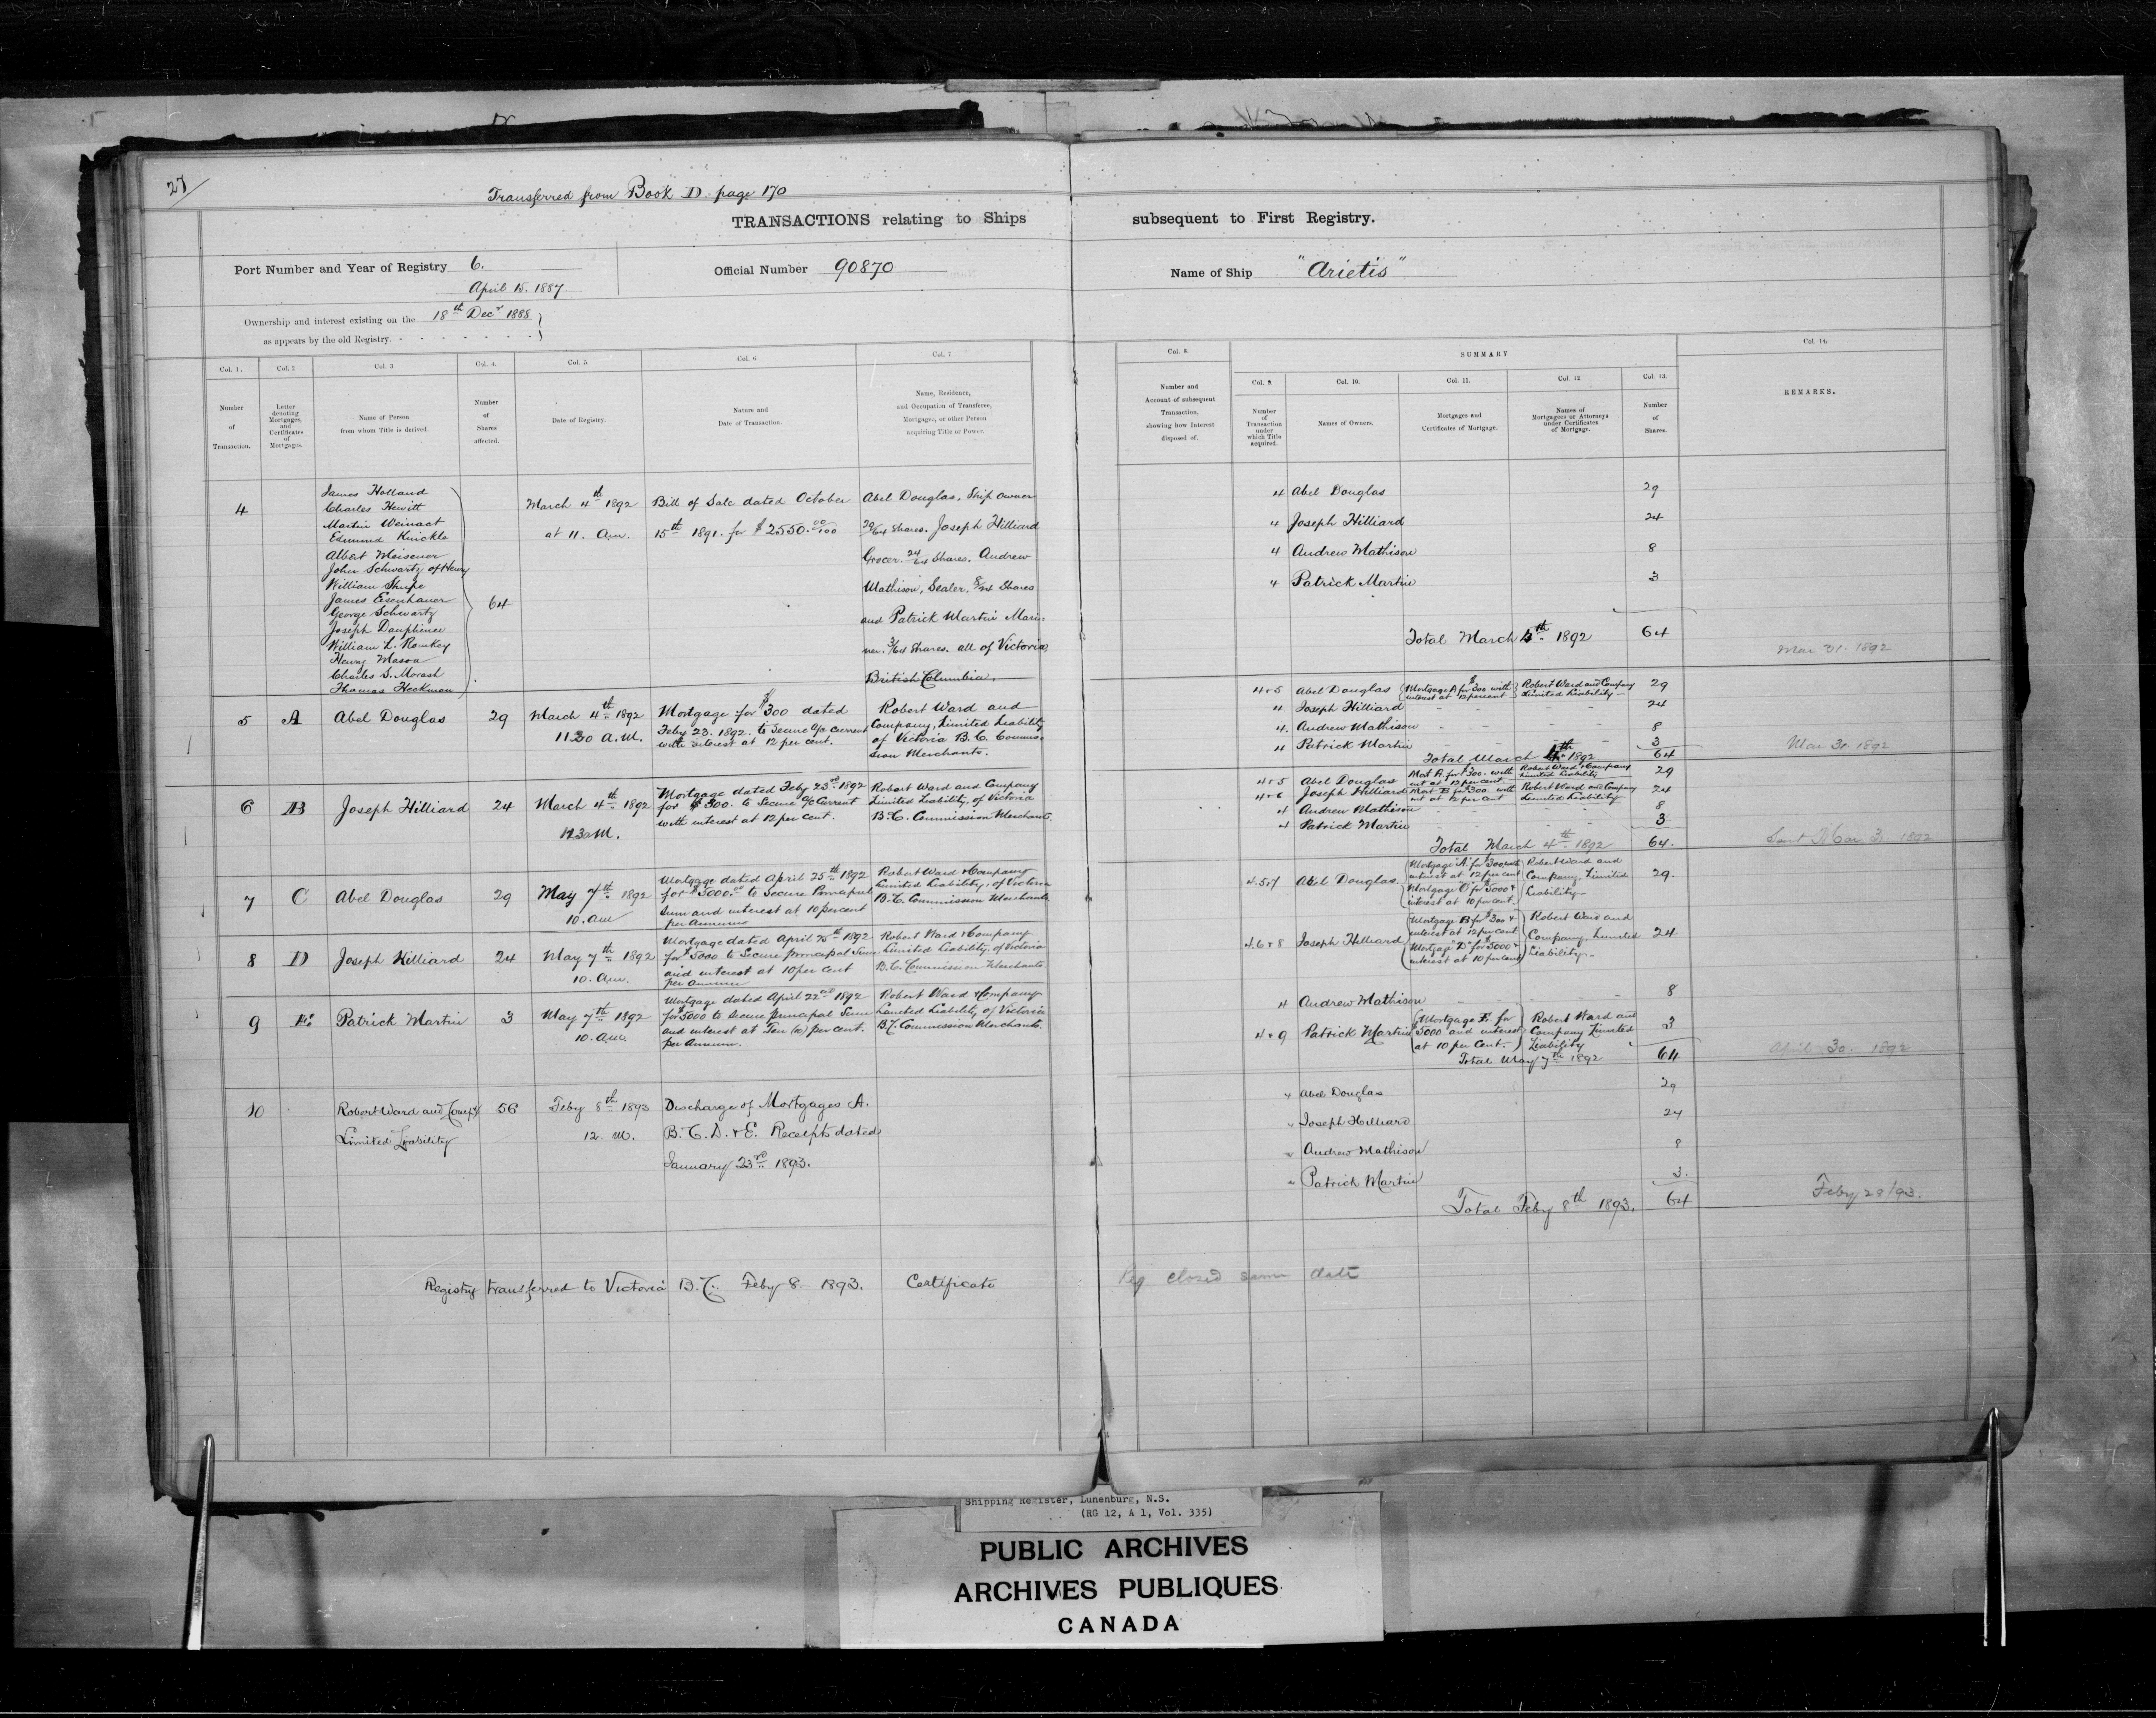 27
Transferred from Book D. page 170
TRANSACTIONS relating to Ships subsequent to First Registry.
Port Number and Year of Registry 6.
April 15. 1887.
Official Number 90870
Name of Ship "Arietis"
Ownership and interest existing on the 18th Decr 1888
as appears by the old Registry.
Col. 1.
Number
of
Transaction.
Col. 2
Letter
denoting
Mortgages,
and
Certificates
of
Mortgages.
Col. 3
Name of Person
from whom Title is derived.
Col. 4.
Number
of
Shares
affected.
Col. 5.
Date of Registry.
Col. 6
Nature and
Date of Transaction.
Col. 7
Name, Residence,
and Occupation of Transferee,
Mortgagee, or other Person
acquiring Title or Power.
Col. 8.
Number and
Account of subsequent
Transaction,
showing how Interest
disposed of.
SUMMARY
Col. 9.
Number
of
Transaction
under
which Title
acquired.
Col. 10.
Names of Owners.
Col. 11.
Mortgages and
Certificates of Mortgage.
Col. 12.
Names of
Mortgagees or Attorneys
under Certificates
of Mortgage.
Col. 13.
Number
of
Shares.
Col. 14.
REMARKS.
4
James Holland
Charles Hewitt
Martin Weinact
Edmund Knickle
Albert Meisener
John Schwartz of Henry
William Shupe
James Eisenhauer
George Schwartz
Joseph Dauphinee
William L. Romkey
Henry Mason
Charles S. Morash
Thomas Heckman
64
March 4th 1892
at 11. Am.
Bill of Sale dated October
15th 1891. for $2550.00/100
Abel Douglas, Ship owner
29/64 Shares. Joseph Hilliard
Grocer. 24/64 Shares. Andrew
Mathison, Sealer, 8/64 Shares
and Patrick Martin Mari:
ner. 3/64 Shares. all of Victoria,
British Columbia.
4 Abel Douglas 29
4 Joseph Hilliard 24
4 Andrew Mathison 8
4 Patrick Martin 3
Total March 4th 1892 64
Mar 31. 1892
5 A Abel Douglas 29
March 4th 1892
11.30 A.M.
Mortgage for $300 dated
Feby 23. 1892. to secure a/c current
with interest at 12 per cent.
Robert Ward and
Company, Limited Liability
of Victoria B.C. Commis-
sion Merchants.
4+5 Abel Douglas Mortgage A for $300 with Robert Ward and Company 29
interest at 12 percent Limited Liability
4 Joseph Hilliard 24
4. Andrew Mathison 8
4 Patrick Martin 3
Total March 4th 1892 64
Mar 31. 1892
6 B Joseph Hilliard 24
March 4th 1892
Mortgage dated Feby 23rd 1892
for $300. to Secure a/c Current
with interest at 12 per cent.
Robert Ward and Company
Limited Liability, of Victoria
B.C. Commission Merchants.
4+5 Abel Douglas Mort A. for $300. with Robert Ward & Company 29
int at 12 per cent. Limited Liability
4+6 Joseph Hilliard Mort B for $300. with Robert Ward and Company 24
int at 12 per cent Limited Liability
4 Andrew Mathison 8
4 Patrick Martin 3
Total March 4th 1892 64.
Sent Mar 31 1892
7 C Abel Douglas 29
May 7th 1892
10. am
Mortgage dated April 25th 1892
for $5000.00 to Secure Principal
Sum and interest at 10 percent
per Annum
Robert Ward & Company
Limited Liability, of Victoria
B.C. Commission Merchants
4.5+7 Abel Douglas. 29.
Mortgage "A" for $300 with
interest at 12 per cent
Mortgage "C" for $5000 &
interest at 10 per cent.
Robert Ward and
Company. Limited
Liability
8 D Joseph Hilliard 24
May 7th 1892
10. Am.
Mortgage dated April 25th 1892
for $5000 to Secure principal Sum
and interest at 10 per cent
per annum
Robert Ward & Company
Limited Liability, of Victoria
B.C. Commission Merchants
4.6+8 Joseph Hilliard 24
Mortgage B for $300 &
interest at 12 per cent
Mortgage "D" for $5000 &
interest at 10 per cent
Robert Ward and
Company. Limited
Liability
4 Andrew Mathison 8
9 E. Patrick Martin 3
May 7th 1892
10. Am.
Mortgage dated April 22nd 1892
for $5000 to secure principal Sum
and interest at Ten (10) per cent.
per Annum.
Robert Ward & Company
Limited Liability, of Victoria
B.C. Commission Merchants.
4+9 Patrick Martin 3
Mortgage E. for
$5000 and interest
at 10 per Cent.
Robert Ward and
Company Limited
Liability
Total May 7th 1892 64
April 30. 1892
10
Robert Ward and Compy
Limited Liability
56
Feby 8th 1893
12. M.
Discharge of Mortgages A.
B. C. D. & E. Receipts dated
January 23rd 1893.
4 Abel Douglas 29
" Joseph Hilliard 24
" Andrew Mathison 8
" Patrick Martin 3.
Total Feby 8th 1893. 64
Feby 28/93.
Registry transferred to Victoria B.C. Feby 8. 1893. Certificate
Reg closed same date
Shipping Register, Lunenburg, N.S.
(RG 12, A 1, Vol. 335)
PUBLIC ARCHIVES
ARCHIVES PUBLIQUES
CANADA